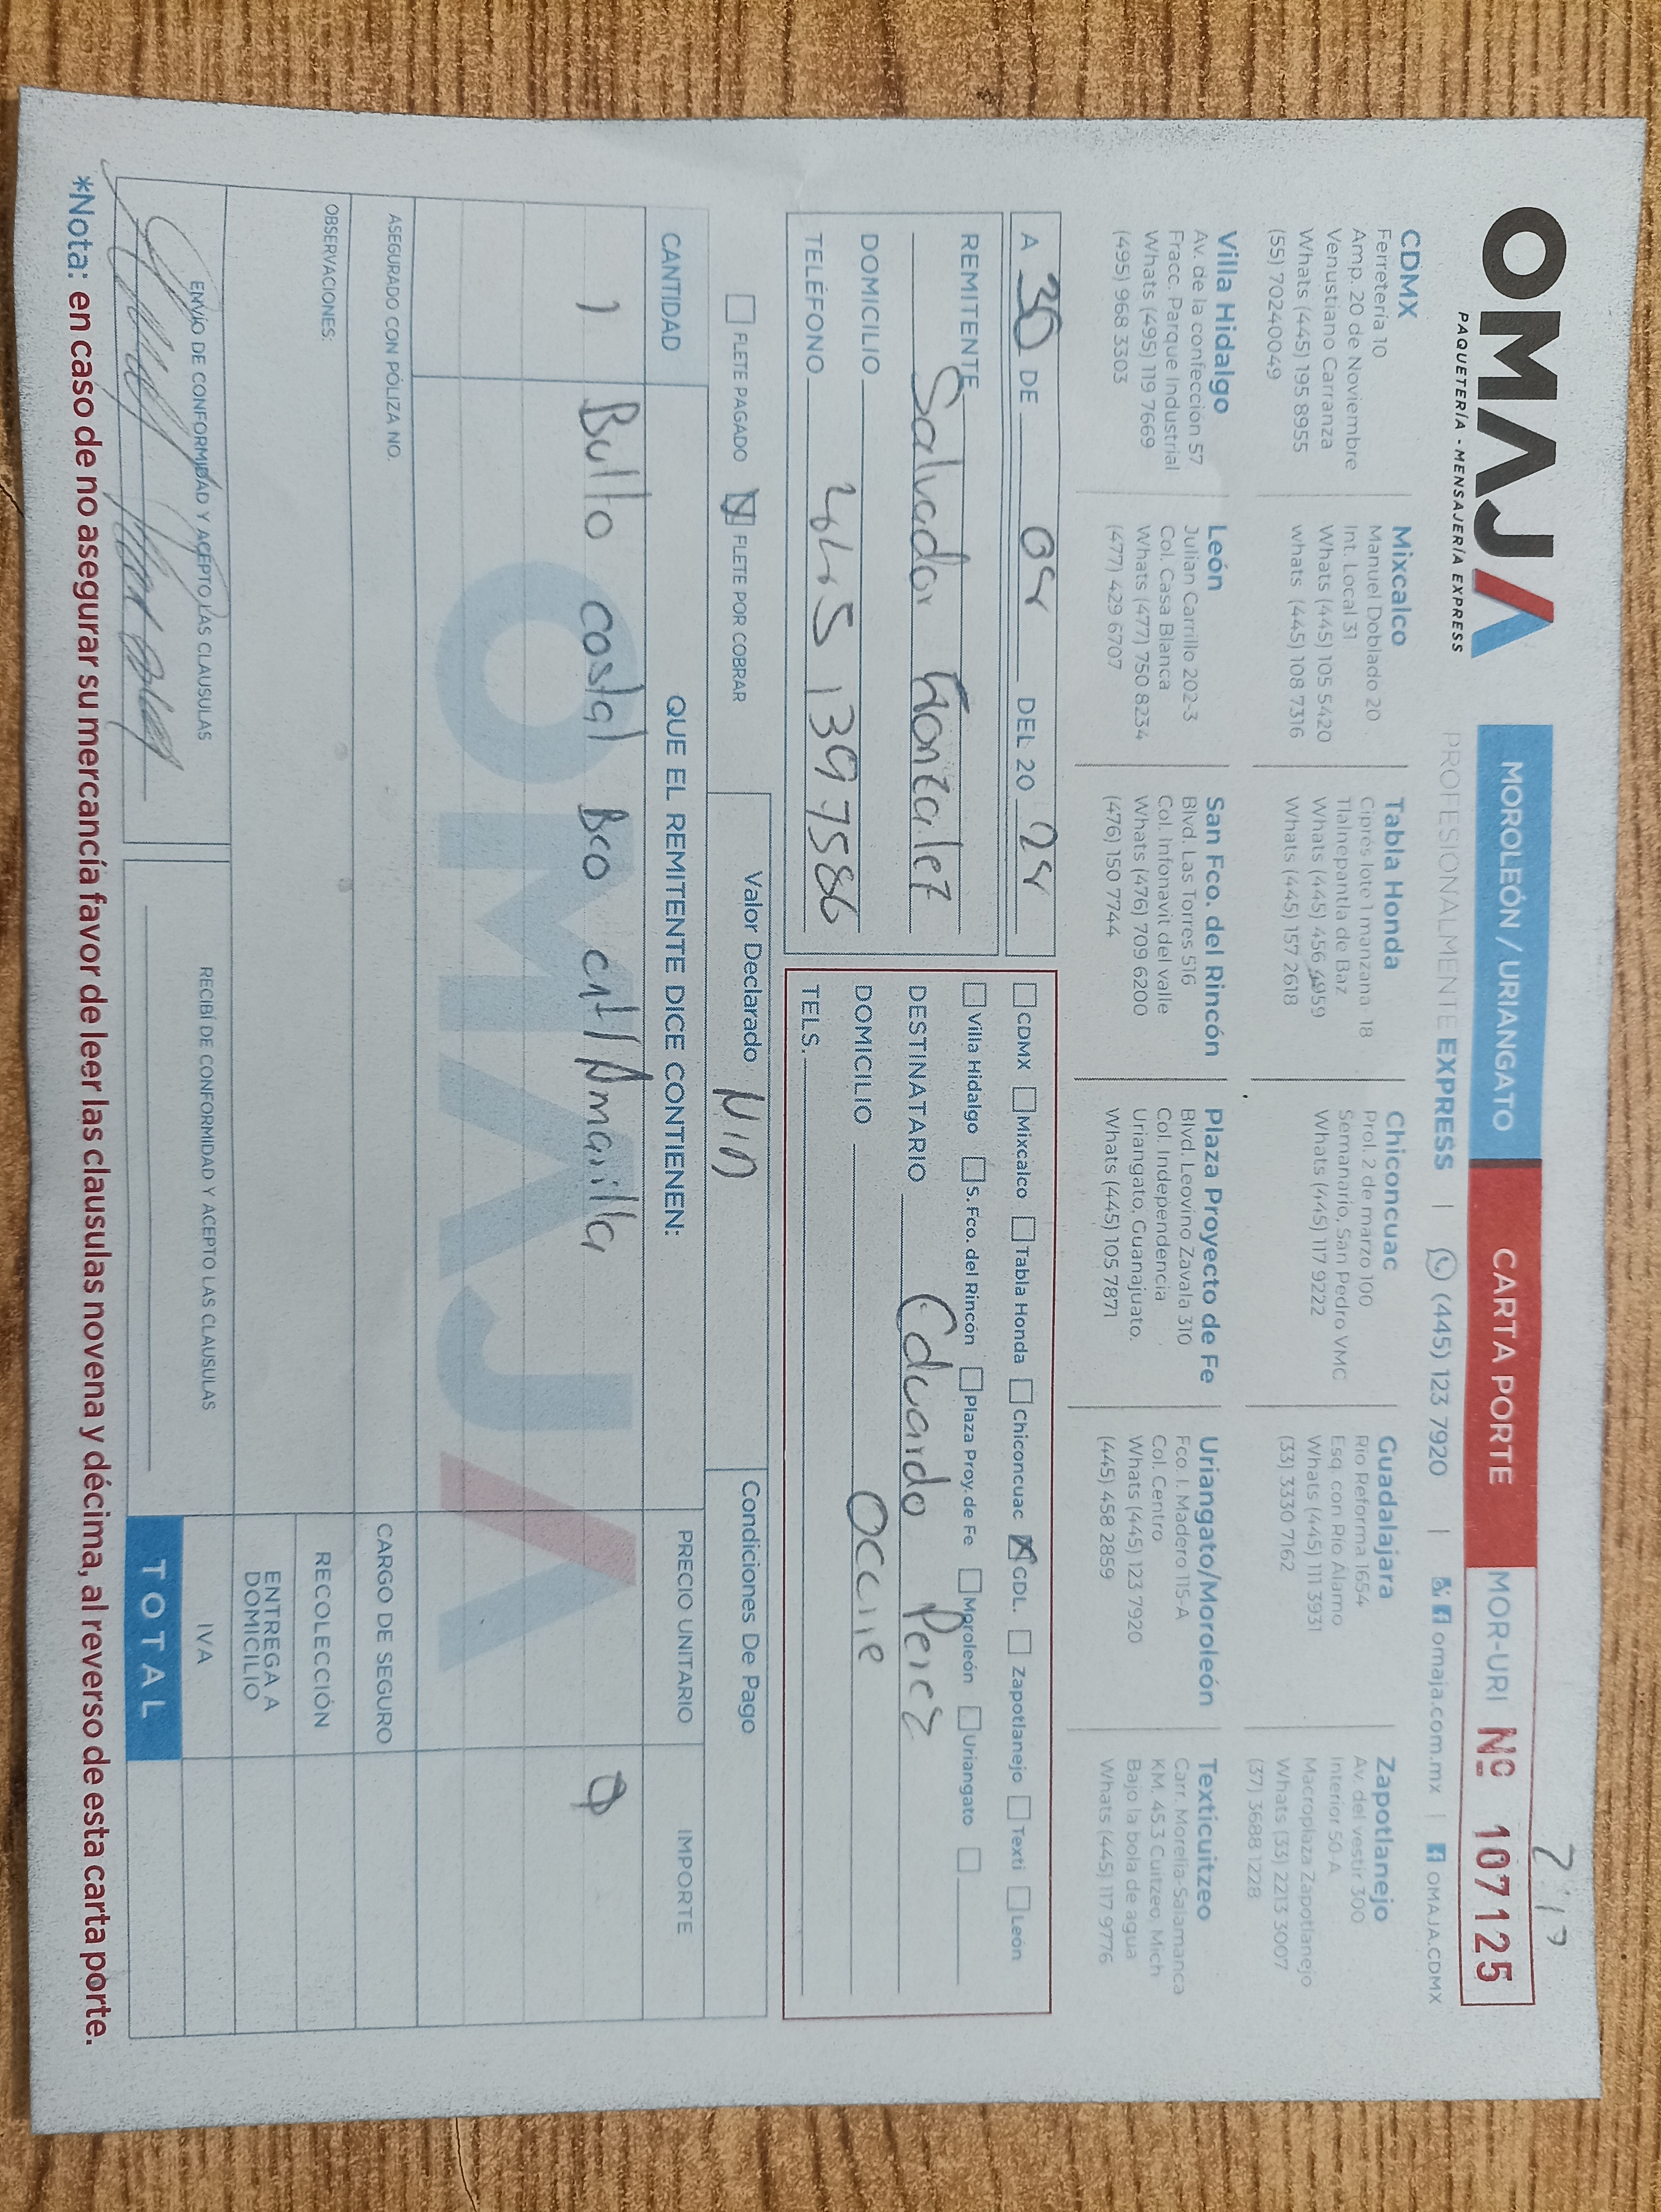 OMAJA
PAQUETERÍA - MENSAJERÍA EXPRESS
MOROLEÓN / URIANGATO
CARTA PORTE
MOR-URI Nº 107125
PROFESIONALMENTE EXPRESS | (445) 123 7920 | omaja.com.mx | OMAJA.CDMX
CDMX
Ferretería 10
Amp. 20 de Noviembre
Venustiano Carranza
Whats (445) 195 8955
(55) 70240049
Mixcalco
Manuel Doblado 20
Int. Local 31
Whats (445) 105 5420
whats (445) 108 7316
Tabla Honda
Ciprés lote 1 manzana 18
Tlalnepantla de Baz
Whats (445) 456 4959
Whats (445) 157 2618
Chiconcuac
Prol. 2 de marzo 100
Semanario, San Pedro VMC
Whats (445) 117 9222
Guadalajara
Río Reforma 1654
Esq. con Río Álamo
Whats (445) 111 3931
(33) 3330 7162
Zapotlanejo
Av. del vestir 300
Interior 50-A
Macroplaza Zapotlanejo
Whats (33) 2213 3007
(37) 3688 1228
Villa Hidalgo
Av. de la confección 57
Fracc. Parque Industrial
Whats (495) 119 7669
(495) 968 3303
León
Julián Carrillo 202-3
Col. Casa Blanca
Whats (477) 750 8234
(477) 429 6707
San Fco. del Rincón
Blvd. Las Torres 516
Col. Infonavit del valle
Whats (476) 709 6200
(476) 150 7744
Plaza Proyecto de Fe
Blvd. Leovino Zavala 310
Col. Independencia
Uriangato, Guanajuato.
Whats (445) 105 7871
Uriangato/Moroleón
Fco. I. Madero 115-A
Col. Centro
Whats (445) 123 7920
(445) 458 2859
Texticuitzeo
Carr. Morelia-Salamanca
KM. 45.3 Cuitzeo, Mich
Bajo la bola de agua
Whats (445) 117 9776
A 30 DE 04 DEL 20 24
REMITENTE
Salvador González
DOMICILIO
TELÉFONO 4451397586
CDMX Mixcalco Tabla Honda Chiconcuac GDL. Zapotlanejo Texti León
Villa Hidalgo S. Fco. del Rincón Plaza Proy. de Fe Moroleón Uriangato
DESTINATARIO Eduardo Perez
DOMICILIO Ocurre
TELS.
FLETE PAGADO FLETE POR COBRAR
Valor Declarado
Condiciones De Pago
CANTIDAD QUE EL REMITENTE DICE CONTIENEN: PRECIO UNITARIO IMPORTE
1 Bulto costal Bco Amarilla
ASEGURADO CON PÓLIZA NO. CARGO DE SEGURO
OBSERVACIONES: RECOLECCIÓN
ENTREGA A DOMICILIO
ENVÍO DE CONFORMIDAD Y ACEPTO LAS CLAUSULAS
RECIBÍ DE CONFORMIDAD Y ACEPTO LAS CLAUSULAS
IVA
TOTAL
*Nota: en caso de no asegurar su mercancía favor de leer las clausulas novena y décima, al reverso de esta carta porte.